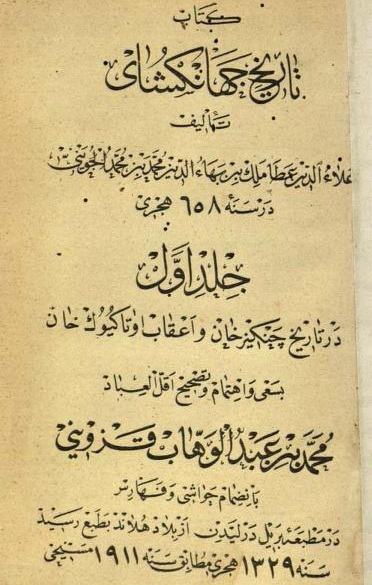 کتاب
تاریخ جهانکشای
تألیف
علاء الدین عطا ملک بن بهاء الدین محمد بن محمد الجوینی
در سنه ٦٥٨ هجری
جلد اوّل
در تاریخ چنکیز خان و اعقاب او تا کیوک خان
بسعی و اهتمام و تصحیح اقل العباد
محمّد بن عبد الوهّاب قزوینی
بانضمام حواشی و فهارس
در مطبعهٔ بریل در لیدن از بلاد هلاند بطبع رسید
سنه ١٣٢٩ هجری مطابق سنه ١٩١١ مسیحی